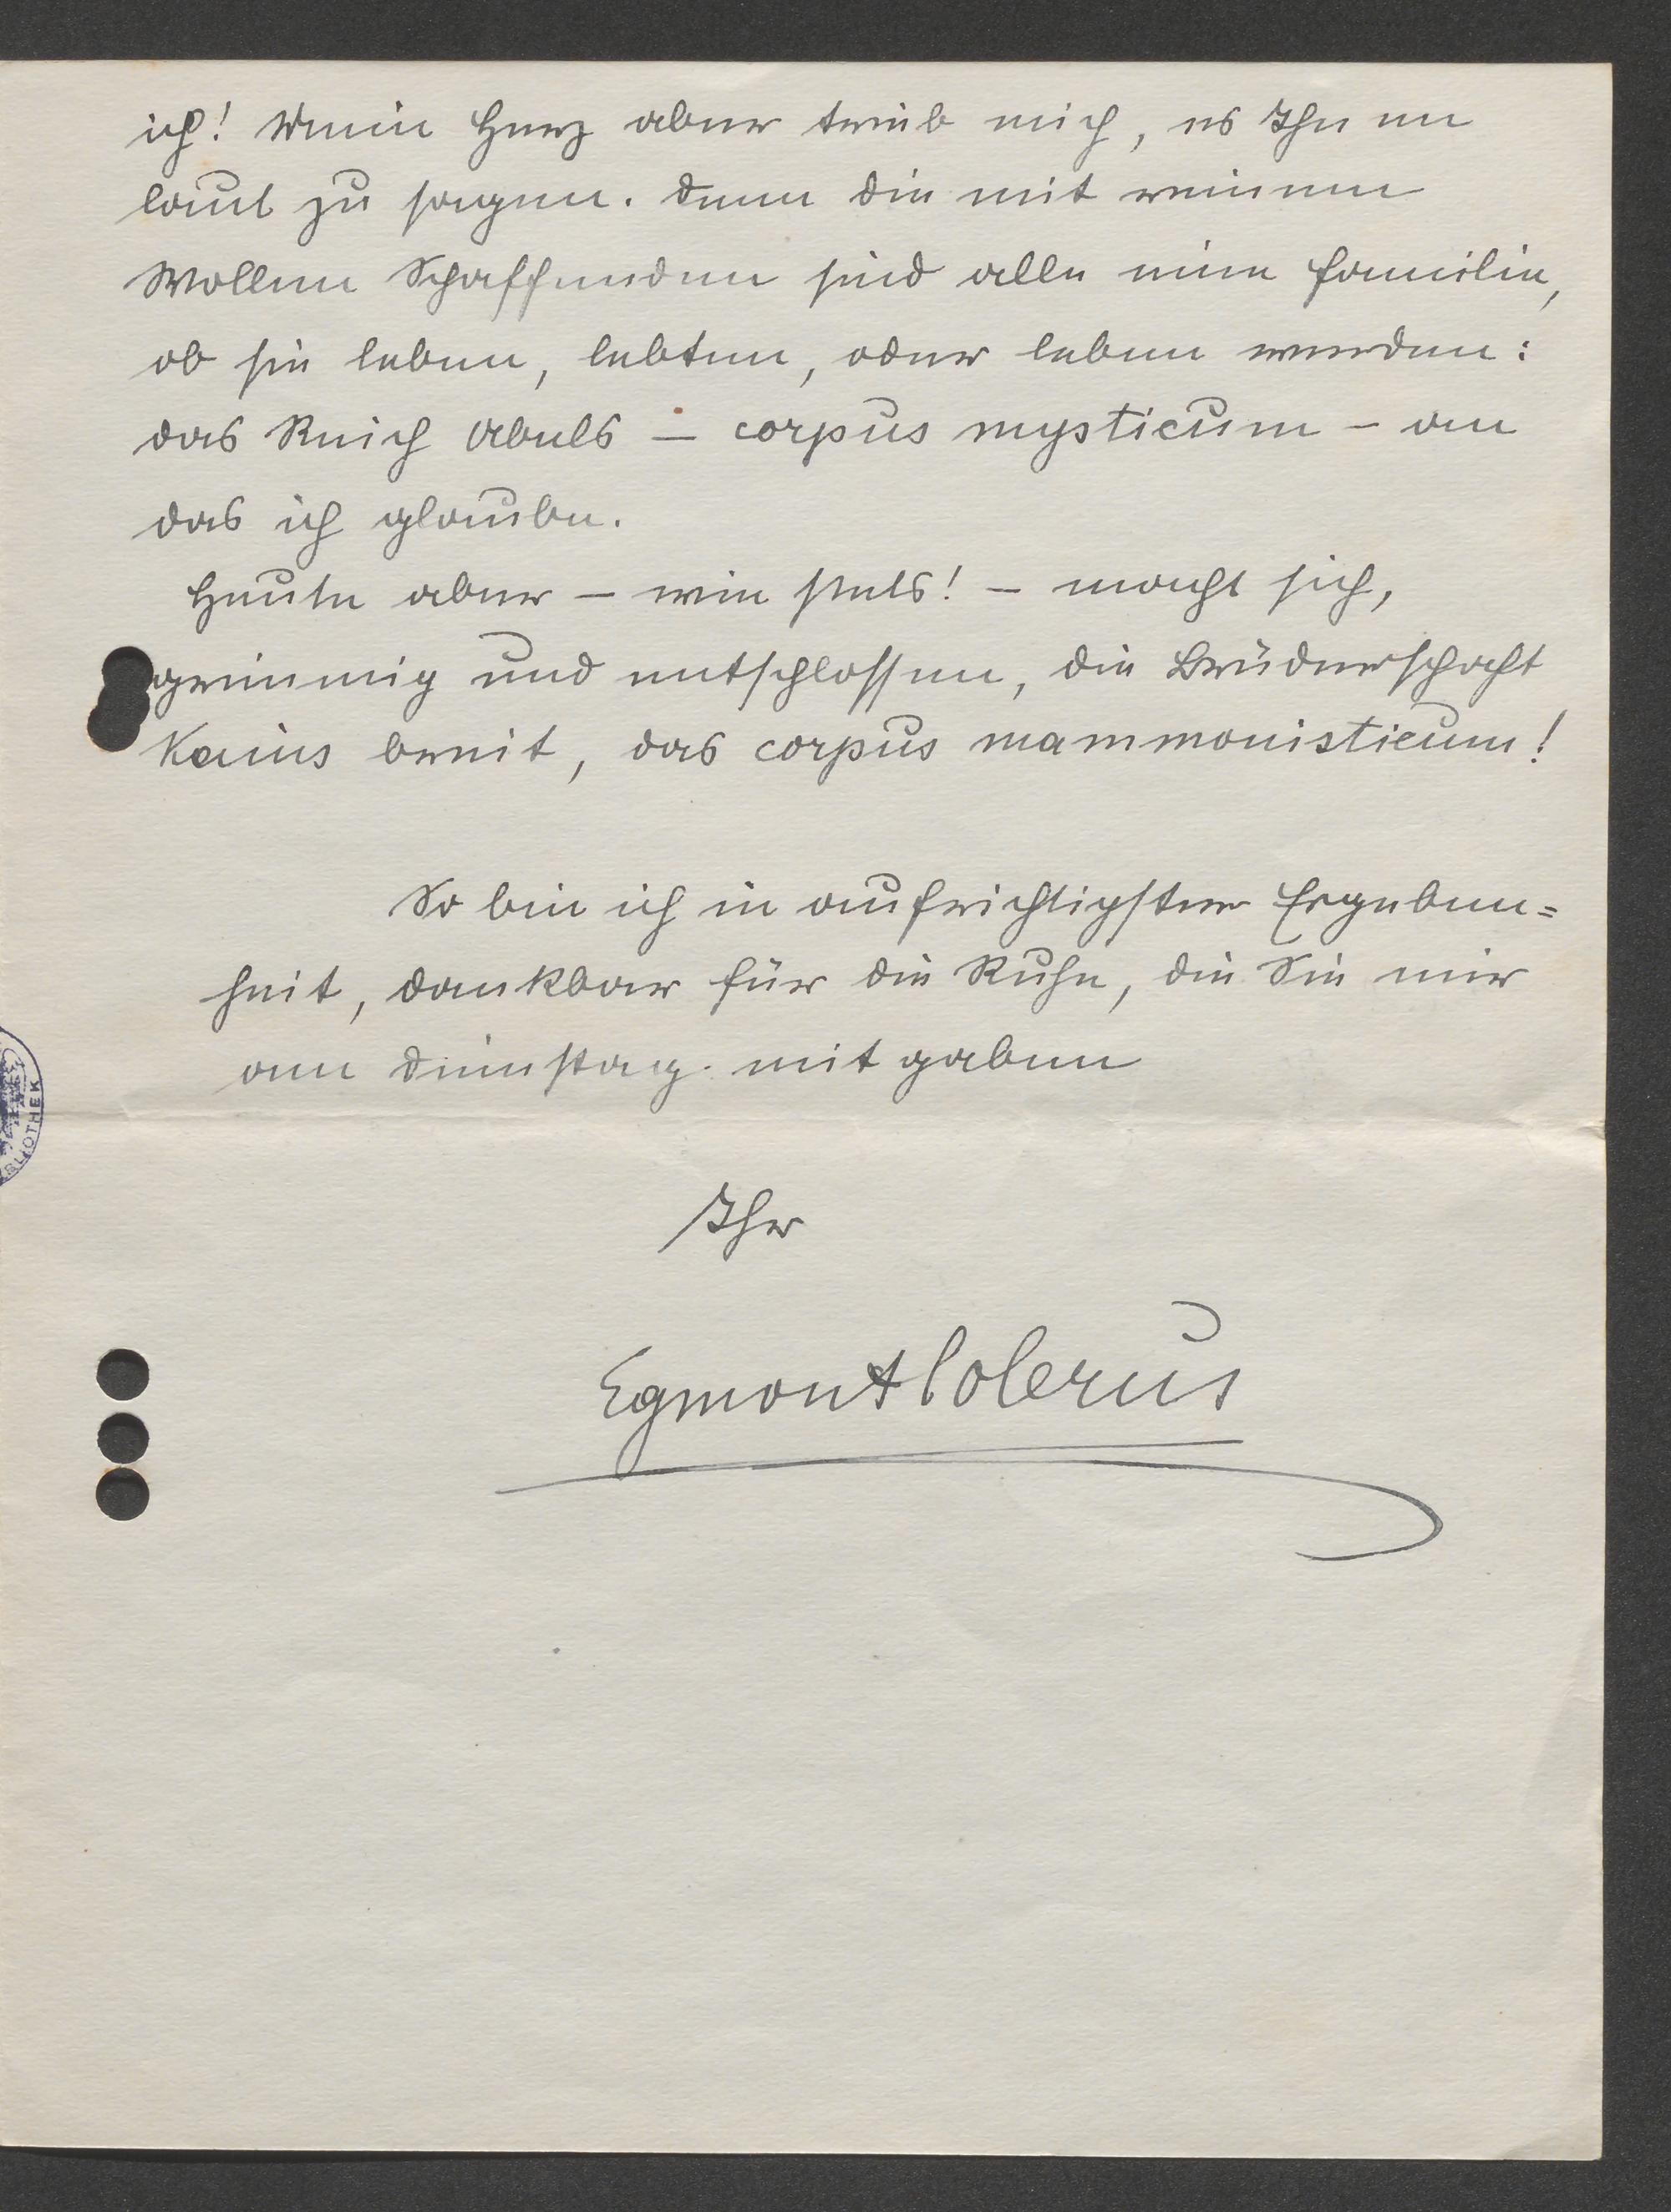 ich! Mein Herz aber trieb mich, es Ihnen
laut zu sagen. Denn die mit reinem
Wollen Schaffenden sind alle eine Familie,
ob sie leben, lebten, oder leben werden:
das Reich Abels – corpus mysticum – an
das ich glaube.
Heute aber – wie stets! – macht sich,
grimmig und entschlossen, die Brüderschaft
Kains bereit, das corpus mammonisticum!
So bin ich in aufrichtigster Ergeben=
heit, dankbar für die Ruhe, die Sie mir
am Dienstag mitgaben
Ihr
Egmont Colerus
BLIOTHEK